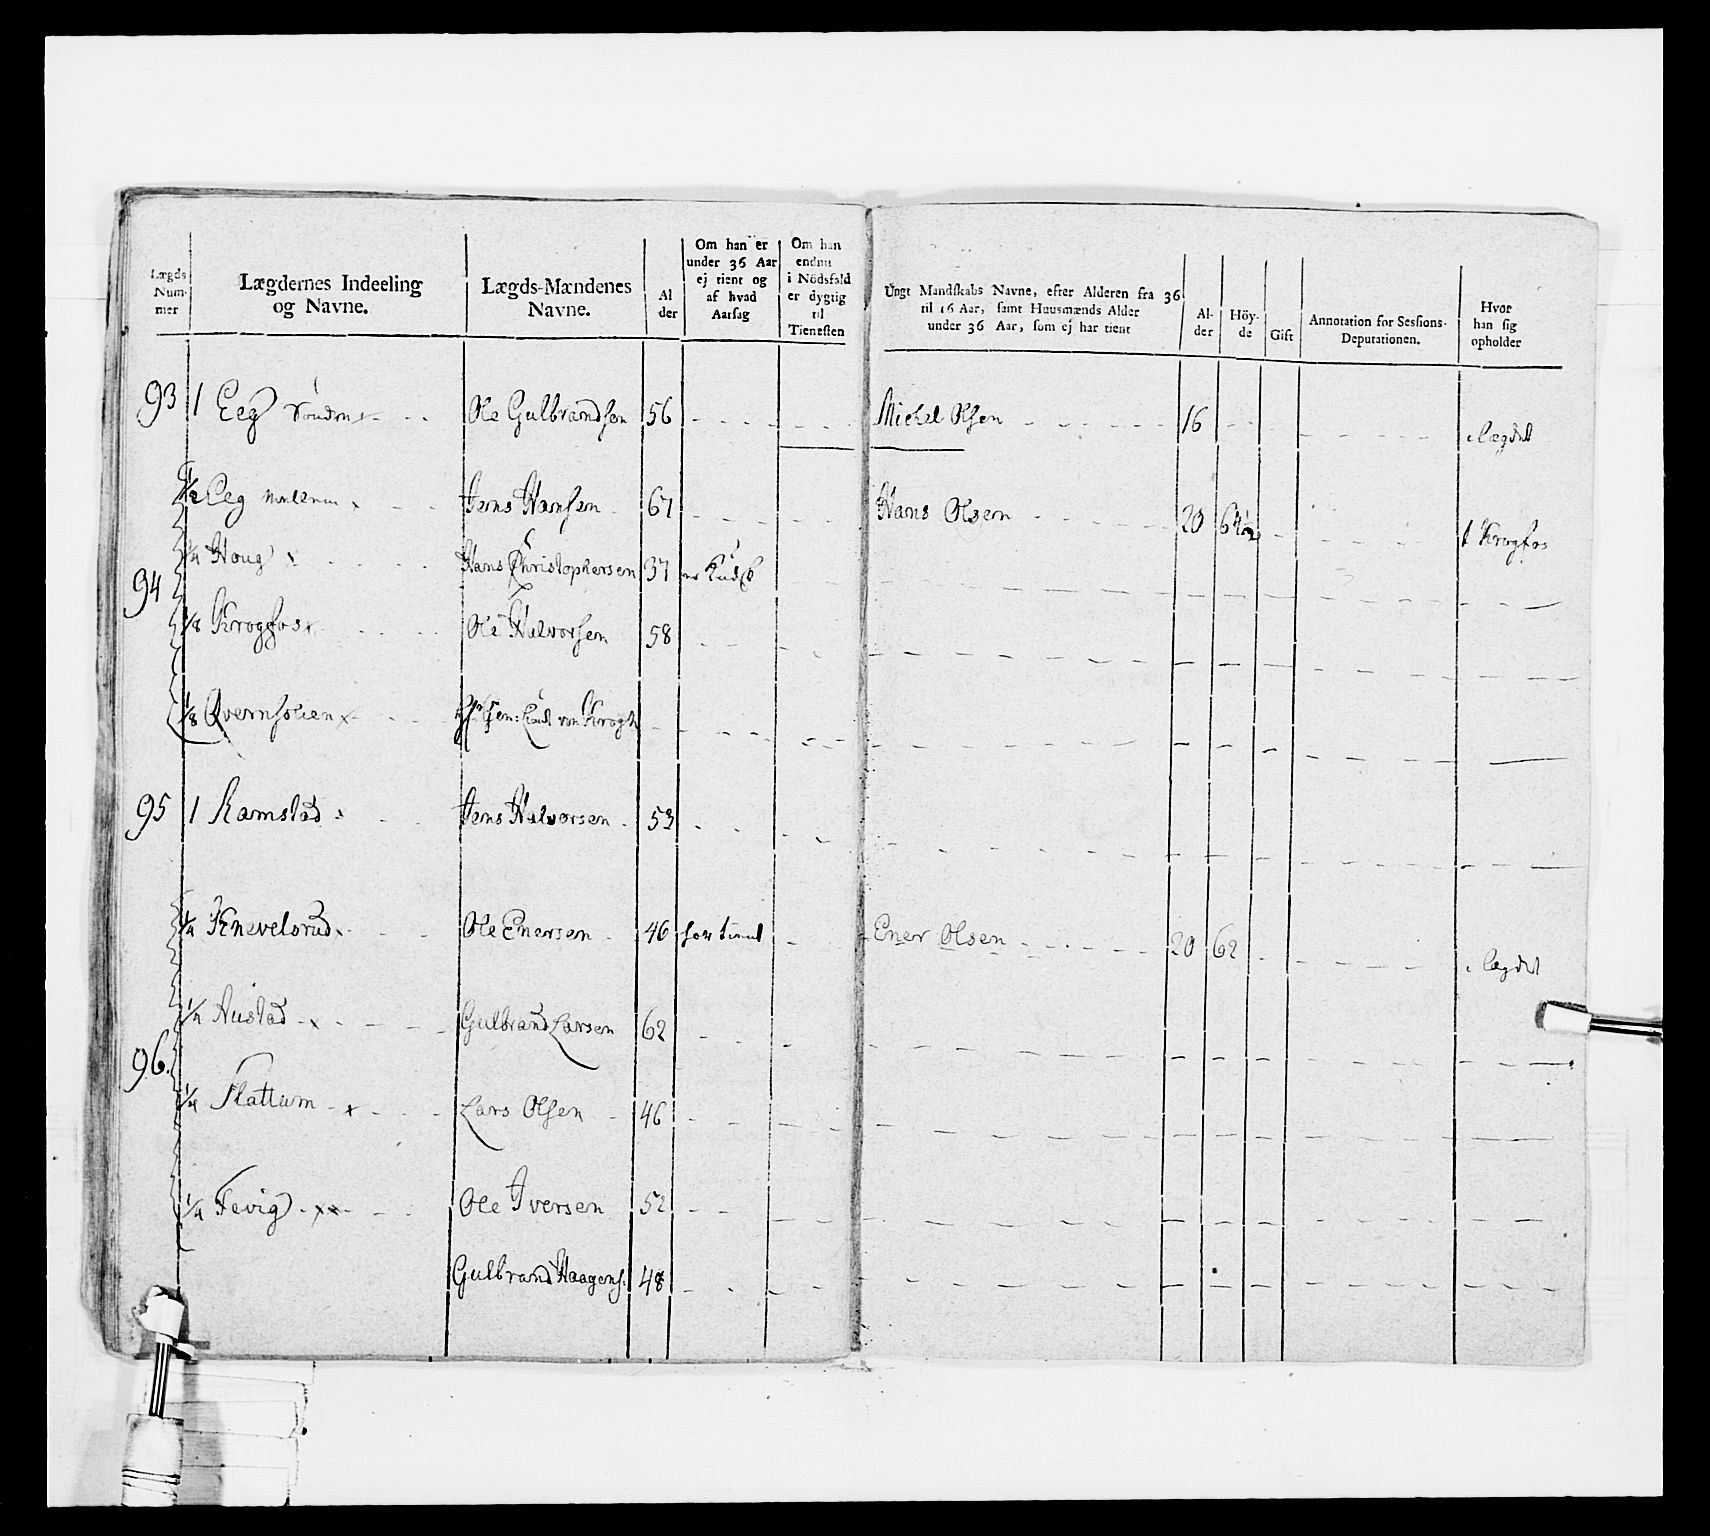 Lægds Num- mer
Lægdernes Indeeling og Navne.
Lægds-Mændenes Navne.
Al der
Om han er under 36 Aar ej tient og af hvad Aarsag
Om han endnu i Nödsfald er dygtig til Tienesten
Ungt Mandskabs Navne, efter Alderen fra 36 til 16 Aar, samt Huusmænds Alder under 36 Aar, som ej har tient
Al- der
Höy- de
Gift
Annotation for Sessions- Deputationen.
Hvor han sig opholder
93 1 Eeg Søndre Ole Gulbrandsen 56 Michel Olsen 16 i lægdet
1/2 Eeg Jens Hansen 67 Hans Olsen 20 64 1/2 Krogfos
1/4 Houg x Hans Christophersen 37
94
1/8 Krogfos x Ole Halvorsen 58
1/8 Qvernfolien x von Krogh
95 1 Ramstad x Jens Halvorsen 53
1/4 Knevelsrud x Ole Enersen 46 har tient Ener Olsen 20 62 i lægdet
1/4 Austad x Gulbrand Larsen 62
96.
1/4 Flattum x Lars Olsen 46
1/4 Fevig xx Ole Iversen 52
Gulbrand Haagens. 48